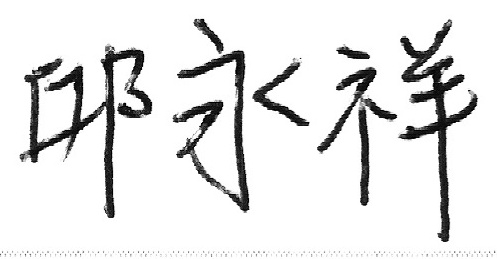 邱永祥